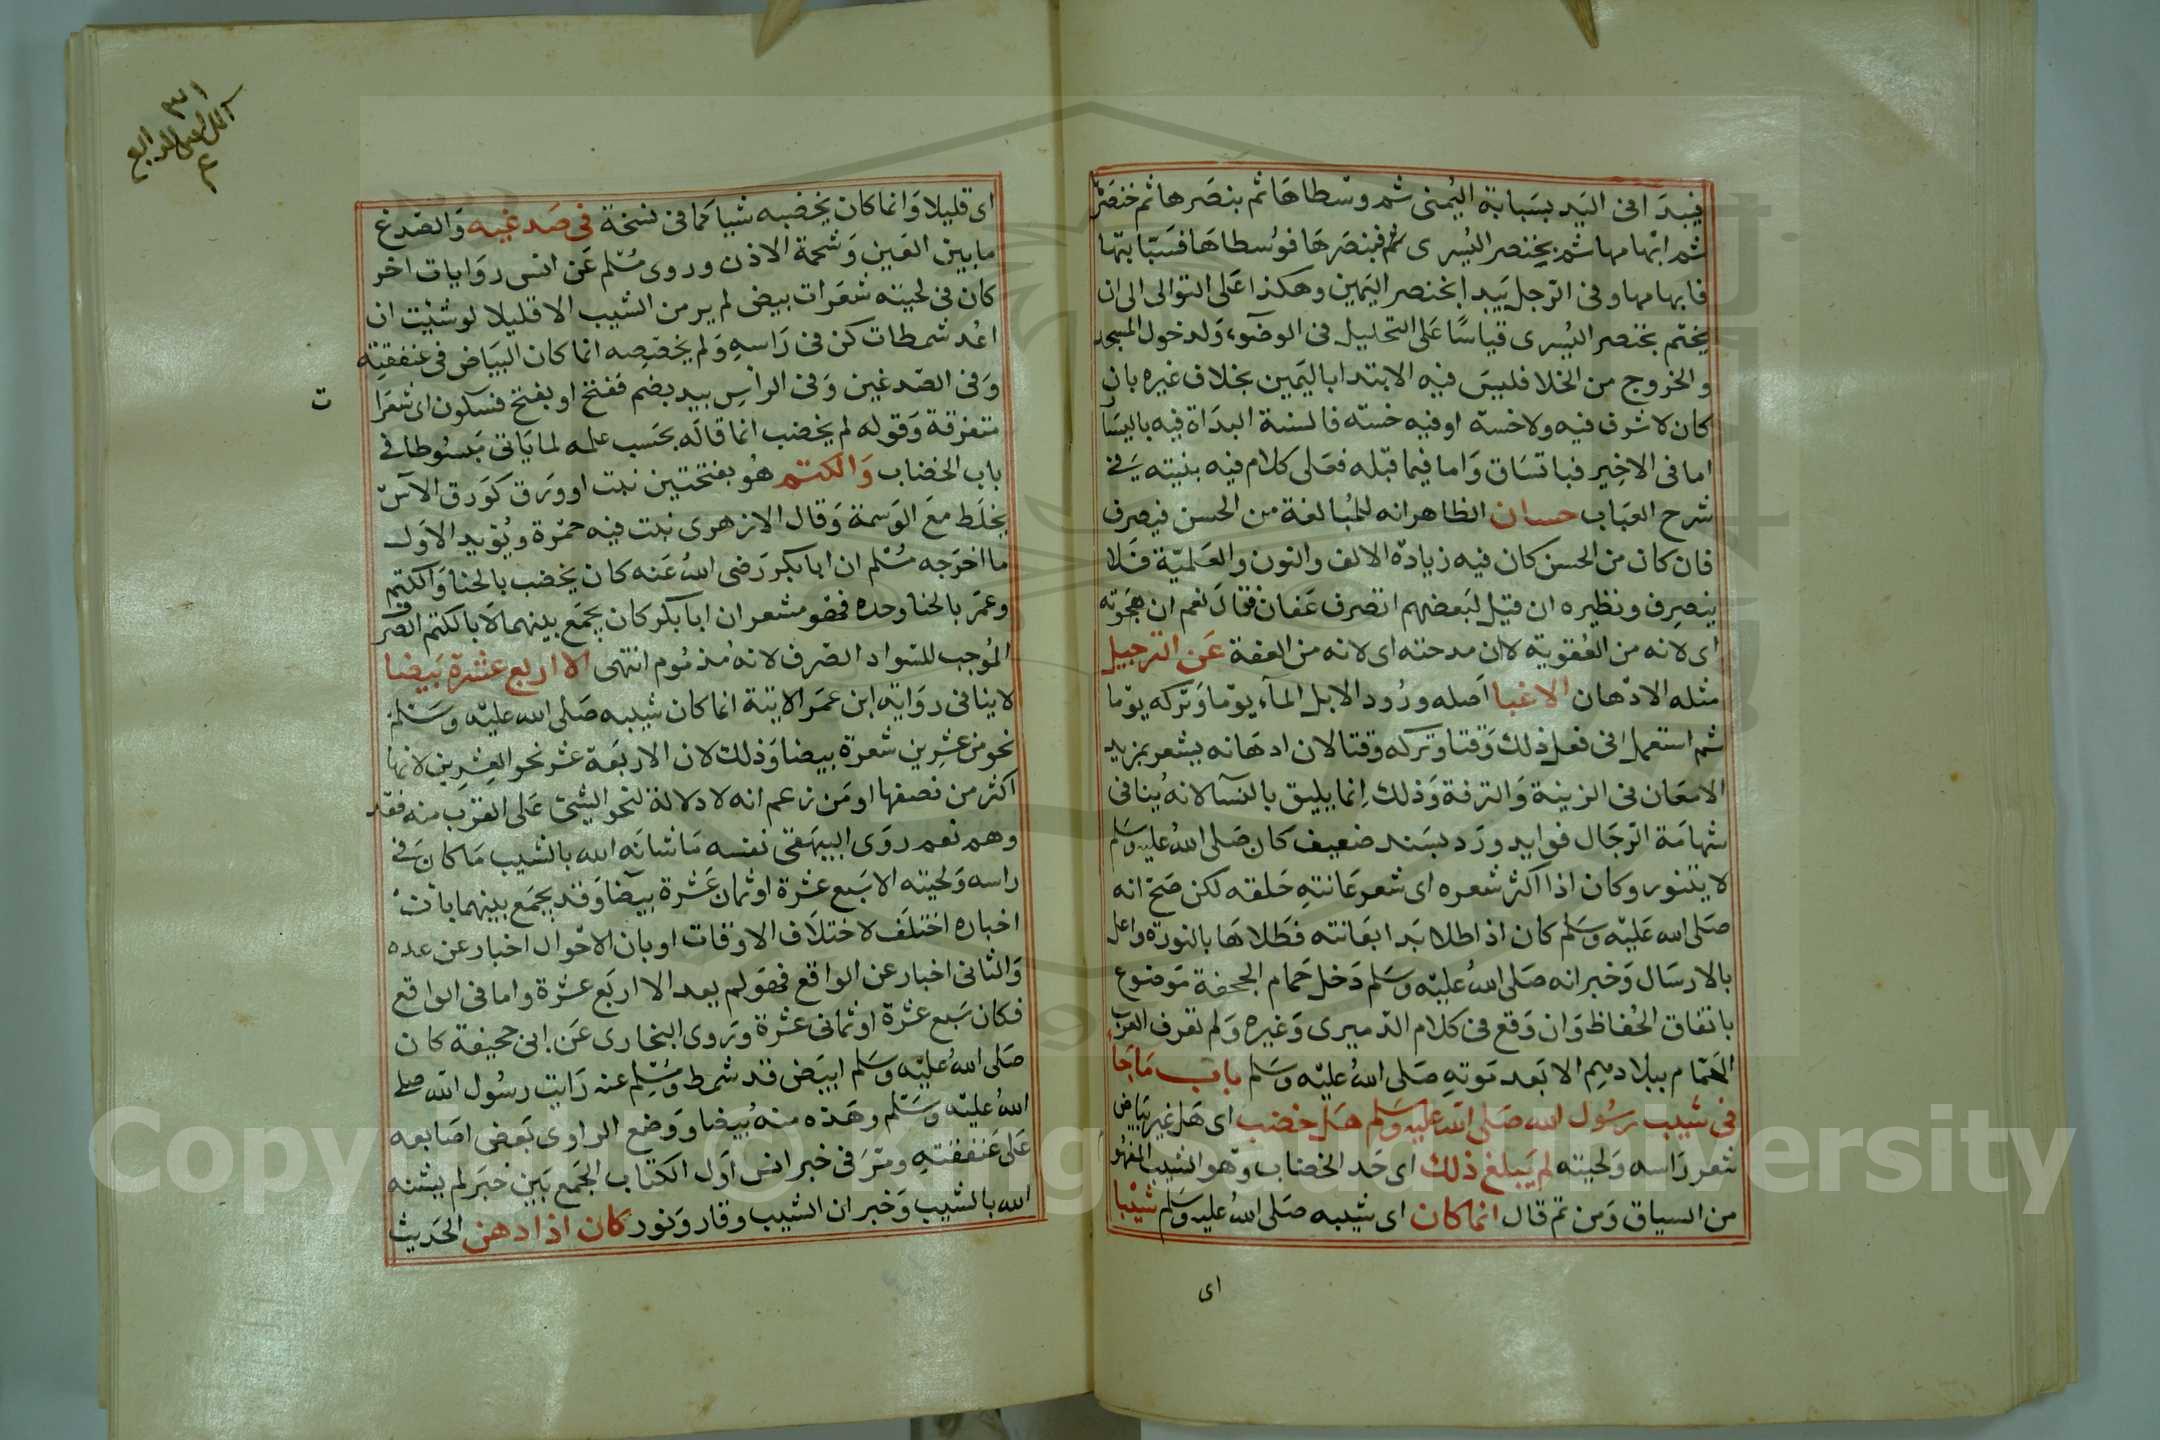 فيبدا في اليد بسبابة اليمنى ثم وسطاها ثم بنصرها ثم خنصرها
ثم ابهامها ثم بخنصر اليسرى ثم فبنصرها فوسطاها فسبابتها
فابهامها وفي الرجل يبدا بخنصر اليمين وهكذا على التوالى الى ان
يختم بخنصر اليسرى قياسا على التخليل في الوضوء ولدخول المسجد
والخروج من الخلا فليس فيه الابتدا باليمين بخلاف غيره بان
كان لا شرف فيه ولا خسة او فيه خسة فالسنة البداة فيه باليسار
اما في الاخير فباتساق واما فيما قبله فعلى كلام فيه بنيته في
شرح العباب حسان الظاهر انه للمبالغة من الحسن فيصرف
فان كان من الحسن كان فيه زيادة الالف والنون والعلمية فلا
ينصرف ونظيره ان قيل لبعضهم اتصرف عفان فقال نعم ان هجوته
اى لانه من العفوية لا ان مدحته اى لانه من العفة عن الترجيل
مثله الادهان الاغبا اصله ورود الابل الماء يوما وتركه يوما
ثم استعمل في فعل ذلك وقتا وتركه وقتا لان ادهانه يشعر بمزيد
الامعان في الزينة والترفة وذلك انما يليق بالنسآ لانه ينافي
شهامة الرجال فوايد ورد بسند ضعيف كان صلى الله عليه وسلم
لا يتنور وكان اذا اكثر شعره اى شعر عانته حلقه لكن صح انه
صلى الله عليه وسلم كان اذا طلا بدا بعانته فطلاها بالنورة واعل
بالارسال وخبر انه صلى الله عليه وسلم دخل حمام الجحفة موضوع
باتفاق الحفاظ وان وقع في كلام الدميرى وغيره ولم تعرف العرب
الحمام ببلادهم الا بعد موته صلى الله عليه وسلم باب ما جاء
في شيب رسول الله صلى الله عليه وسلم هل خضب اى هل غير بياض
شعر راسه ولحيته لم يبلغ ذلك اى حد الخضاب وهو الشيب المفهوم
من السياق ومن ثم قال انما كان اى شيبه صلى الله عليه وسلم شيبا
اى
٣١
الرابع
٤
اى قليلا وانما كان يخضبه شيا كما في نسخة في صدغيه والصدغ
ما بين العين وشحمة الاذن وروى مسلم عن انس روايات اخر
كان في لحيته شعرات بيض لم ير من الشيب الا قليلا لو شئت ان
اعد شمطات كن في راسه ولم يخضبه انما كان البياض في عنفقته
وفي الصدغين وفي الراس بيد بضم ففتح او بفتح فسكون اى شعرا
ت
متفرقة وقوله لم يخضب انما قاله بحسب علمه لما ياتى مبسوطا في
باب الخضاب والكتم هو بفتحتين نبت او ورق كورق الآس
يخلط مع الوسمة وقال الازهرى نبت فيه حمرة ويؤيد الاول
ما اخرجه مسلم ان ابا بكر رضى الله عنه كان يخضب بالحنا والكتم
وعمر بالحنا وحده فهو مشعر ان ابا بكر كان يجمع بينهما لا بالكتم الصرف
الموجب للسواد الصرف لانه مذموم انتهى الا اربع عشرة بيضا
لا ينافي رواية ابن عمر الاتية انما كان شيبه صلى الله عليه وسلم
نحو من عشرين شعرة بيضا وذلك لان الاربعة عشر نحو العشرين لانها
اكثر من نصفها او من زعم انه لا دلالة لنحو الشئ على القرب منه فقد
وهم نعم روى البيهقى نفسه ما شانه الله بالشيب ما كان في
راسه ولحيته الا سبع عشرة او ثمان عشرة بيضا وقد يجمع بينهما بان
اخباره اختلف لاختلاف الاوقات او بان الاول اخبار عن عده
والثانى اخبار عن الواقع فهو لم يعد الا اربع عشرة واما في الواقع
فكان سبع عشرة او ثمانى عشرة وروى البخارى عن ابى جحيفة كان
صلى الله عليه وسلم ابيض قد شمط ومسلم عنه رايت رسول الله صلى
الله عليه وسلم وهذه منه بيضا ووضع الراوى بعض اصابعه
على عنفقته ومر في خبر انس اول الكتاب الجمع بين خبر لم يشنه
الله بالشيب وخبر ان الشيب وقار ونور كان اذا دهن الحديث
Copyright © King Saud University